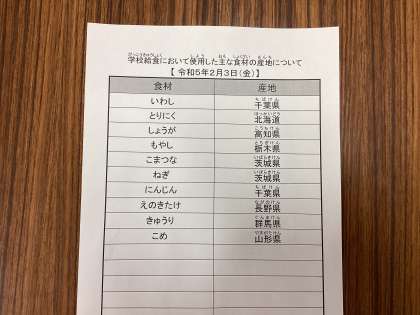 学校給食において使用した主な食材の産地について
【 令和5年2月3日(金) 】
食材 産地
いわし 千葉県
とりにく 北海道
しょうが 高知県
もやし 栃木県
こまつな 茨城県
ねぎ 茨城県
にんじん 千葉県
えのきたけ 長野県
きゅうり 群馬県
こめ 山形県